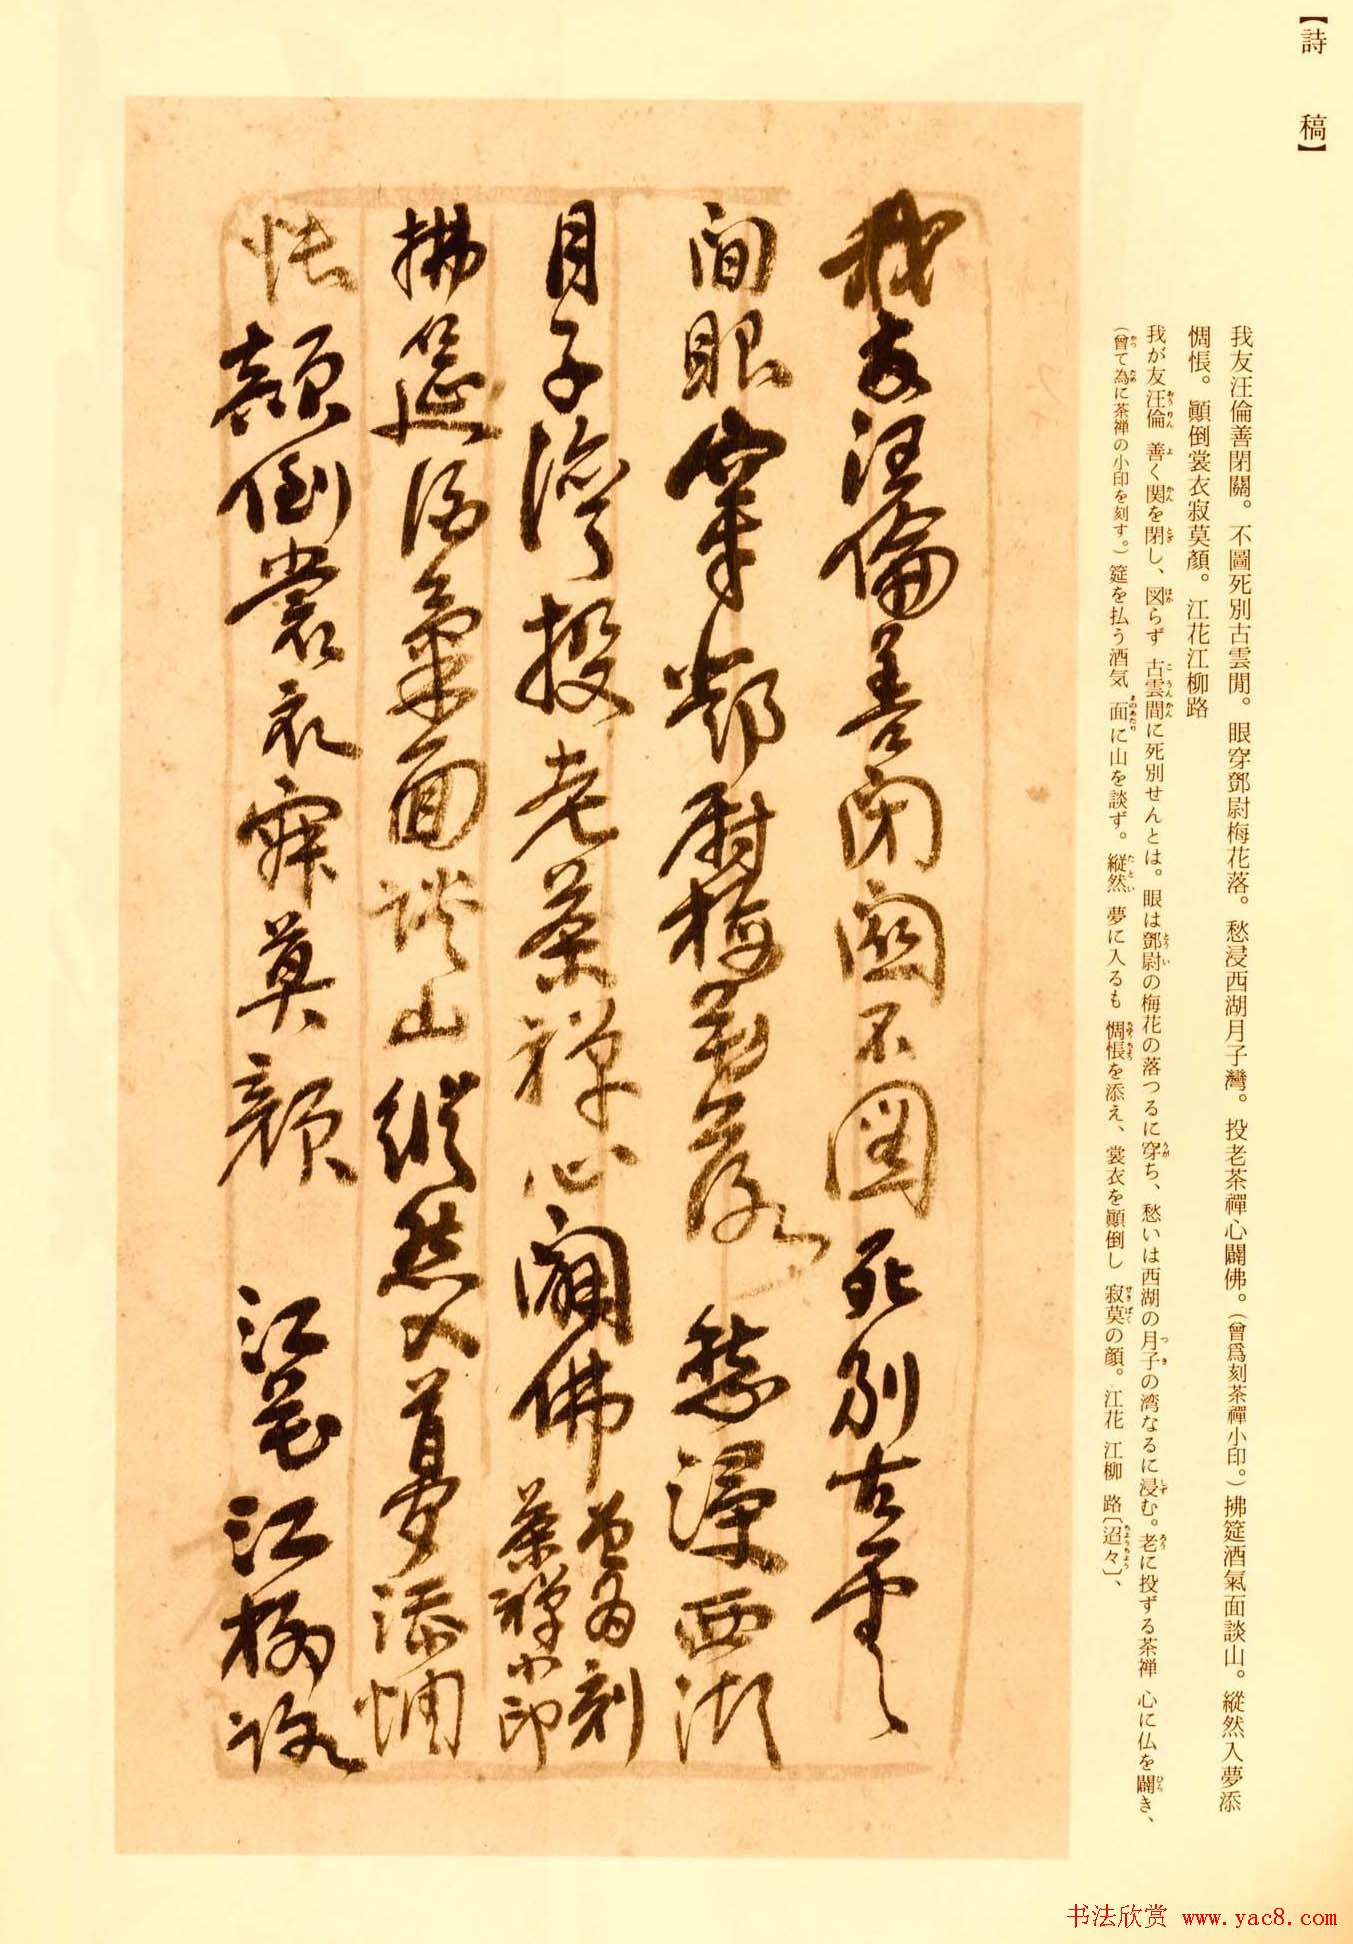 【詩　稿】
我友汪倫善閉關。不圖死別古雲閒。眼穿鄧尉梅花落。愁浸西湖月子灣。投老茶禪心闢佛。（曾爲刻茶禪小印。）拂筵酒氣面談山。縱然入夢添
惆悵。顚倒裳衣寂莫顏。江花江柳路
我が友汪倫 善く関を閉し、図らず 古雲間に死別せんとは。眼は鄧尉の梅花の落つるに穿ち、愁いは西湖の月子の湾なるに浸む。老に投ずる茶禅 心に仏を闢き、
（曾て為に茶禅の小印を刻す。）筵を払う酒気 面に山を談ず。縦然 夢に入るも 惆悵を添え、裳衣を顚倒し 寂莫の顔。江花 江柳 路〔迢々〕、
我友汪倫善閉關不圖死別古雲
閒眼穿鄧尉梅花落愁浸西湖
月子灣投老茶禪心闢佛曾爲刻茶禪小印
拂筵酒氣面談山縱然入夢添惆
悵顛倒裳衣寂莫顏江花江柳路
书法欣赏 www.yac8.com